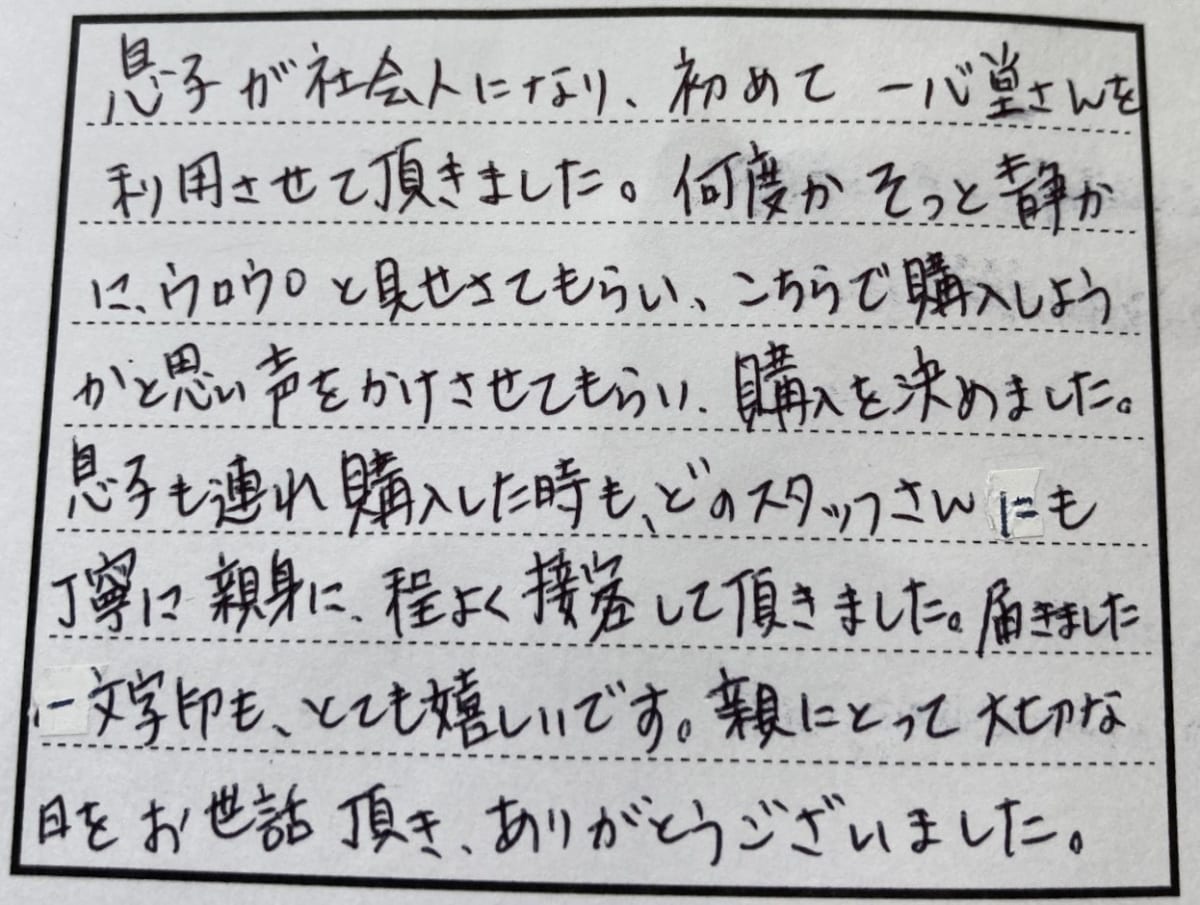 息子が社会人になり、初めて 一心堂さんを
利用させて頂きました。何度か そっと静か
に、ウロウロと見せさてもらい、こちらで購入しよう
かと思い声をかけさせてもらい、購入を決めました。
息子も連れ購入した時も、どのスタッフさんにも
丁寧に親身に、程よく接客して頂きました。届きました
一文字印も、とても嬉しいです。親にとって大切な
日をお世話頂き、ありがとうございました。